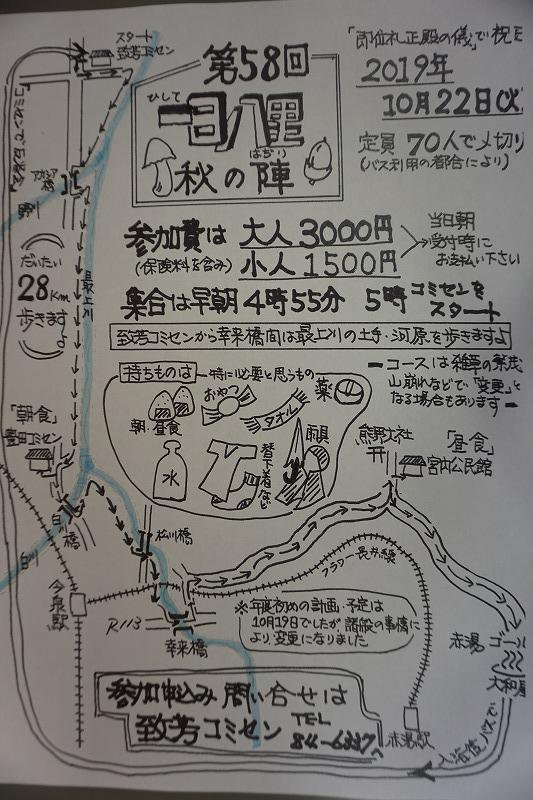 スタート
致芳コミセン
第58回
ひして
一日八里
はぢり
秋の陣
「即位礼正殿の儀」で祝日
2019年
10月22日(火)
定員 70人で〆切り
(バス利用の都合により)
参加費は 大人 3000円
(保険料を含み) 小人 1500円
当日朝
受付時に
お支払い下さい
集合は早朝 4時55分 5時 コミセンを
スタート
致芳コミセンから幸来橋間は最上川の土手・河原を歩きますよ
アカシア橋
野川
最上川
だいたい
28Km
歩きますよ
持ちものは
特に必要と思うもの
おやつ
タオル
薬
朝・昼食
水
替下着など
雨具
ーコースは雑草の繁茂
山崩れなどで「変更」と
なる場合もありますー
「朝食」
豊田コミセン
熊野大社
「昼食」
宮内公民館
白川橋
白川
松川橋
フラワー長井線
今泉駅
R113
幸来橋
※年度初めの計画・予定は
10月19日でしたが、諸般の事情に
より、変更になりました
赤湯 ゴール
大和屋
赤湯駅
入浴後バスで
参加申込み 問い合せは
致芳コミセン TEL
84-6337へ